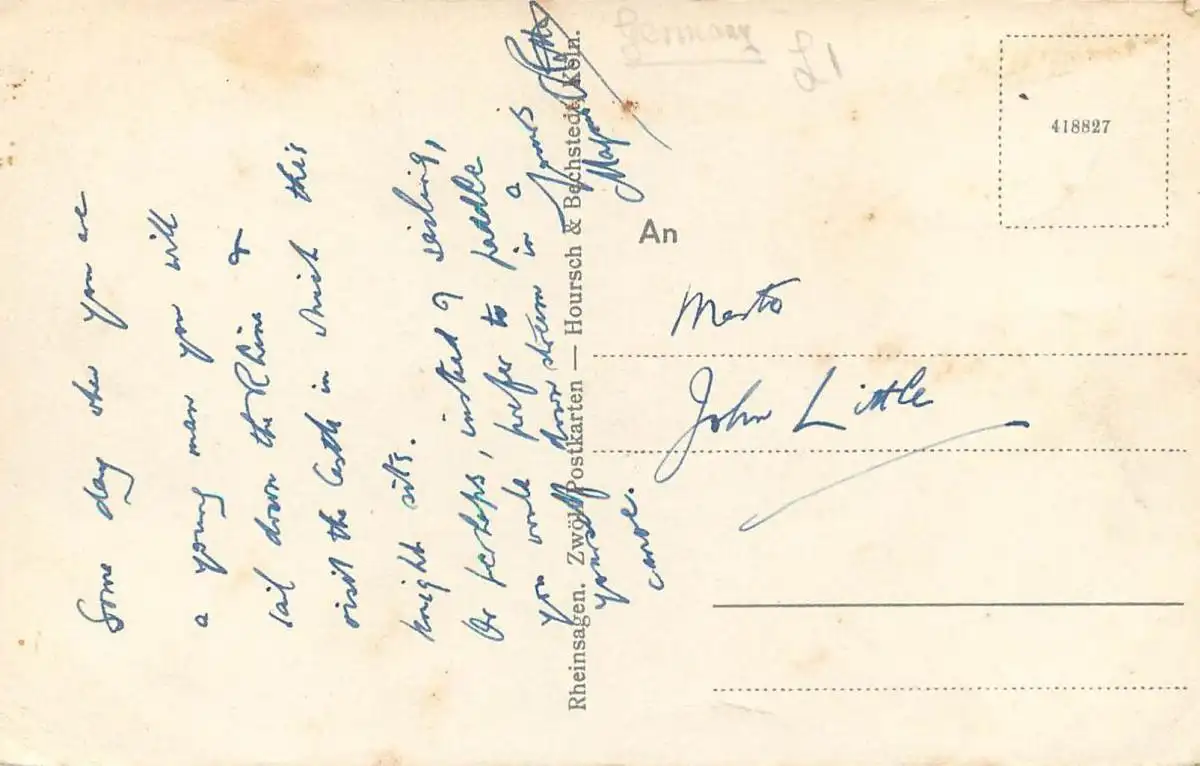 Some day when you are
a young man you will
sail down the Rhine &
visit the Castle in which this
knight sits.
Or perhaps, instead of sailing,
you would prefer to paddle
yourself down stream in a
canoe.
Yours
Rheinsagen. Zwölf Postkarten — Hoursch & Bechstedt, Köln.
Germany
£1
418827
An
John Little